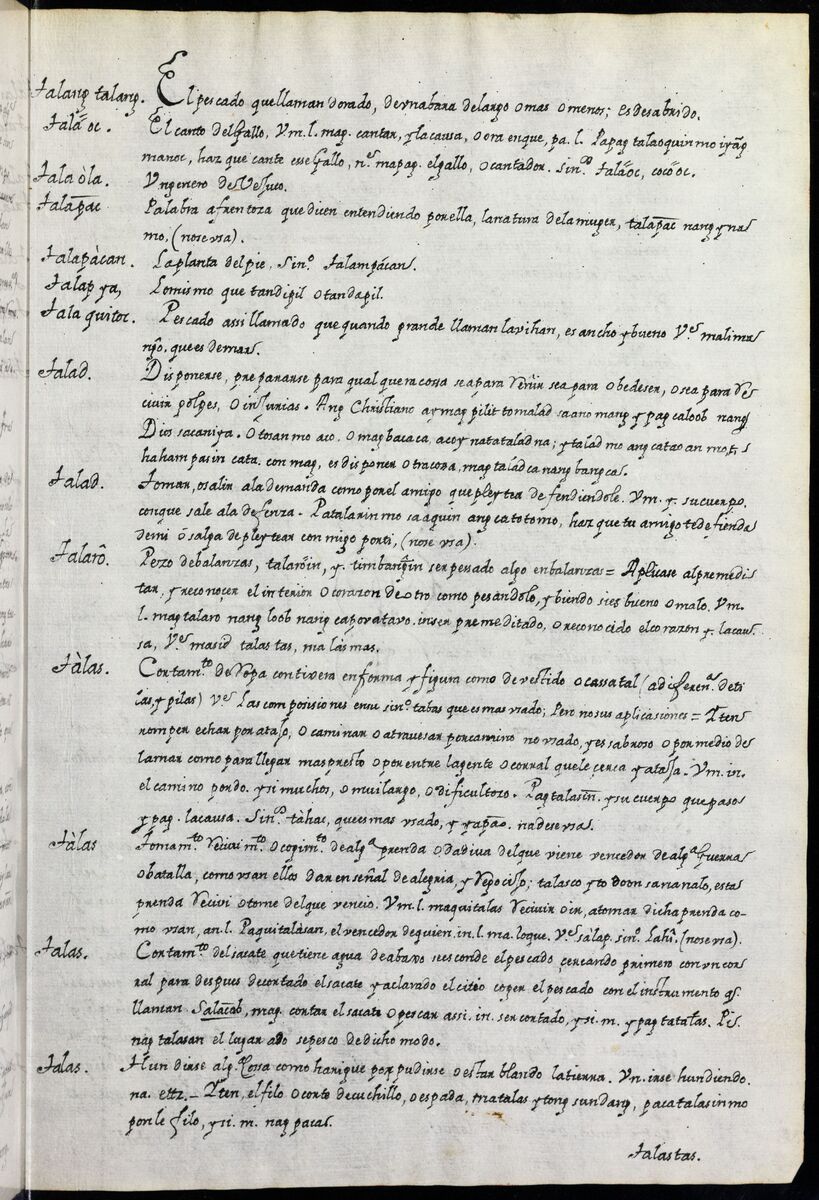 talang talang. El pescado que llaman dorado, de vna bara de largo o mas o menos; es desabrido.
tala͠oc. El canto del gallo, Vm. l. mag. cantar, y la causa, o ora en que, pa. l. Papag talaoquin mo iyang
manoc, haz que cante esse gallo, n.s mapag. el gallo, o cantador. Sin.o tala͠oc, coco͠oc.
tala òla. Vn genero de Vejuco.
talap͠ac Palabra afrentoza que dicen entendiendo por ella, la natura de la muger, talap͠ac nang yna
mo, (no se vsa).
talapàcan. La planta del pie, Sin.o talampácan.
talap ya, Lo mismo que tandipil o tandapil.
tala quitoc. Pescado assi llamado que quando grande llaman lavihan, es ancho y bueno V.e malima
que es de mar.
talad. Disponerse, prepararse para qual quera cossa sea para servir sea para obedeser, o sea para Re
civir golpes, o injurias. Ang Christiano ay mag pilit tomalad sa ano mang y pag caloob nang
Dios sa caniya. o tosan mo aco. o mag baca ca, aco y natatalad na; y talad mo ang cataoan mo,
haham pasin cata. con mag, es disponer otra coza, mag talád ca nang bangcas.
talad. tomar, o salir a la demanda como por el amigo que pleytea defendiendole. Vm. y. su cuerpo.
con que sale a la defenza. Patalarin mo sa aquin ang catoto mo, haz que tu amigo te defienda
de mi ó salga de pleytear con migo por ti, (no se vsa).
talarô. Pezo de balanzas, talaróin, y. timbangin ser pesado algo en balanzas = Aplicase al premedi
tar, y reconoçer el interior o corazon de otro como pesandolo, y biendo si es bueno o malo. Vm.
l. mag talaro nang loob nang capoua tavo. in ser premeditado, o reconocido el corazon y. la cau
sa, V.e masid talastas, malasmas.
tàlas. Cortam.to de Ropa con tixera en forma y figura como de vestido o cassa tal (a diferen.a de ti
las, y pilas) V.e las composisiones en su sin.o tabas que es mas vsado; Pero no sus aplicasiones = Yten
romper echar por atajo, o caminar o atravesar por camino no vsado, y es sabroso o por medio de
la mar como para llegar mas presto o por entre la gente o corral que le çerca y ataja. Vm. in.
el camino pordo. y si muchos, o mui largo, o dificultozo. Pag talasin. y su cuerpo que paso
y pag. la causa. Sin.o tàhac, que es mas vsado, y
tàlas Tomam.to Recivim.to o cogim.to de alg.a prenda o dadiva del que viene vencedor de alg.a guerra
o batalla, como vsan ellos dar en señal de alegria, y Regocijo; talasco yto Dom sa nanalo, esta
prenda Recivi o tome del que vencio. Vm. l. maquitalas Recivir o ir, a tomar dicha prenda co
mo vsan, an. l. Paquitalàsan, el vencedor de quien. in. l. ma. lo que. V.e sàlap. sin.o (no se vsa).
talas. Cortam.to del sacate que tiene agua debaxo se esconde el pescado, çercando primero con vn cor
ral para despues de cortado el sacate y aclarado el citio coger el pescado con el instrumento q.e
llaman Salac͠ab, mag. cortar el sacate o pescar assi. in. ser cortado, y si. m. y pag tatalas. Pi
nag talasan el lugar ado se pesco de dicho modo.
talas. Hundirse alg.a Cosa como harique por pudrirse o estar blando la tierra. Vn. irse hundiendo.
na. ettz. – Yten, el filo o corte de cuchillo, o espada, matalas ytong sundang, pacatalasin mo
ponle filo, y si. m. nag pacas.
talastas.